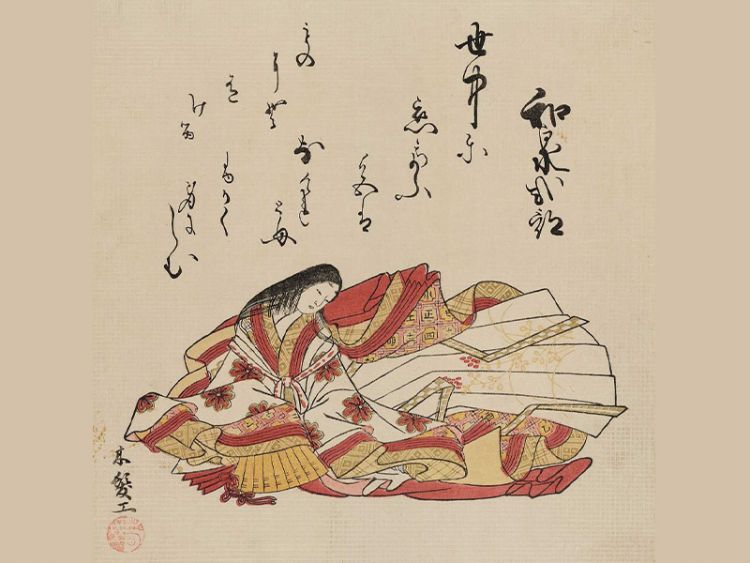 和泉式部
世中に
恋てふ
色は
なけれとも
ふかく
身にしむ
もの
にそ
有
ける